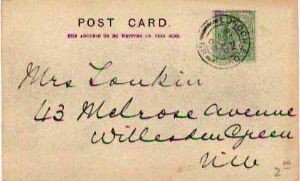 POST CARD.
THE ADDRESS TO BE WRITTEN ON THIS SIDE.
Mrs Tonkin
43 Melrose Avenue
Willesden Green
NW
2